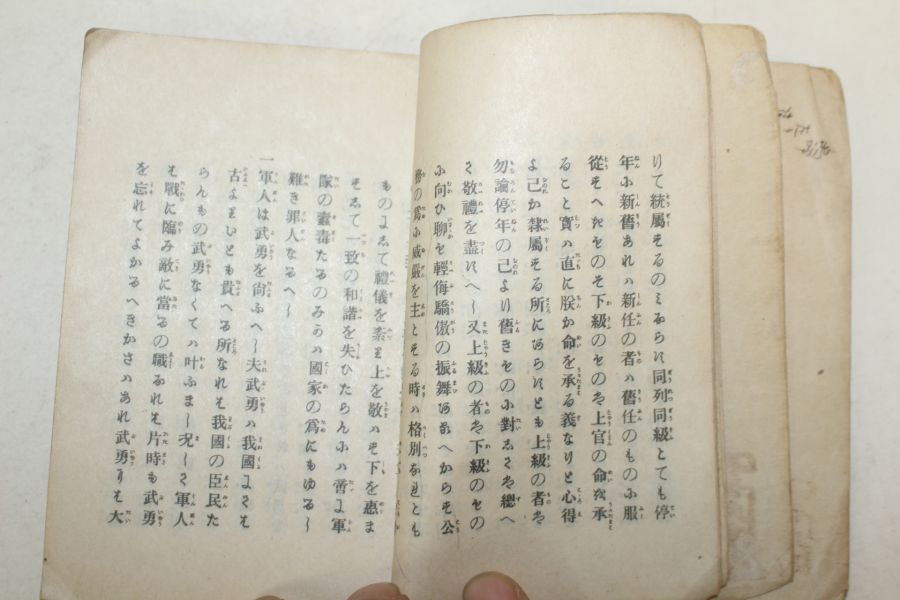 りて統屬するのみならす同列同級とても停
年に新舊あれは新任の者は舊任のものに服
從すへきものそ下級のものは上官の命を承
ること實は直に朕か命を承る義なりと心得
よ己か隷屬する所にあらすとも上級の者は
勿論停年の己より舊きものに對しては總へ
て敬禮を盡すへし又上級の者は下級のもの
に向ひ聊も輕侮驕傲の振舞あるへからす公
務の爲に威嚴を主とする時は格別なれとも
ものにして禮儀を紊り上を敬はす下を惠ま
すして一致の和諧を失ひたらんには啻に軍
隊の蠹毒たるのみかは國家の爲にもゆるし
難き罪人なるへし
一軍人は武勇を尚ふへし夫武勇は我國にては
古よりいとも貴へる所なれは我國の臣民た
らんもの武勇なくては叶ふまし况して軍人
は戰に臨み敵に當るの職なれは片時も武勇
を忘れてよかるへきかさはあれ武勇には大